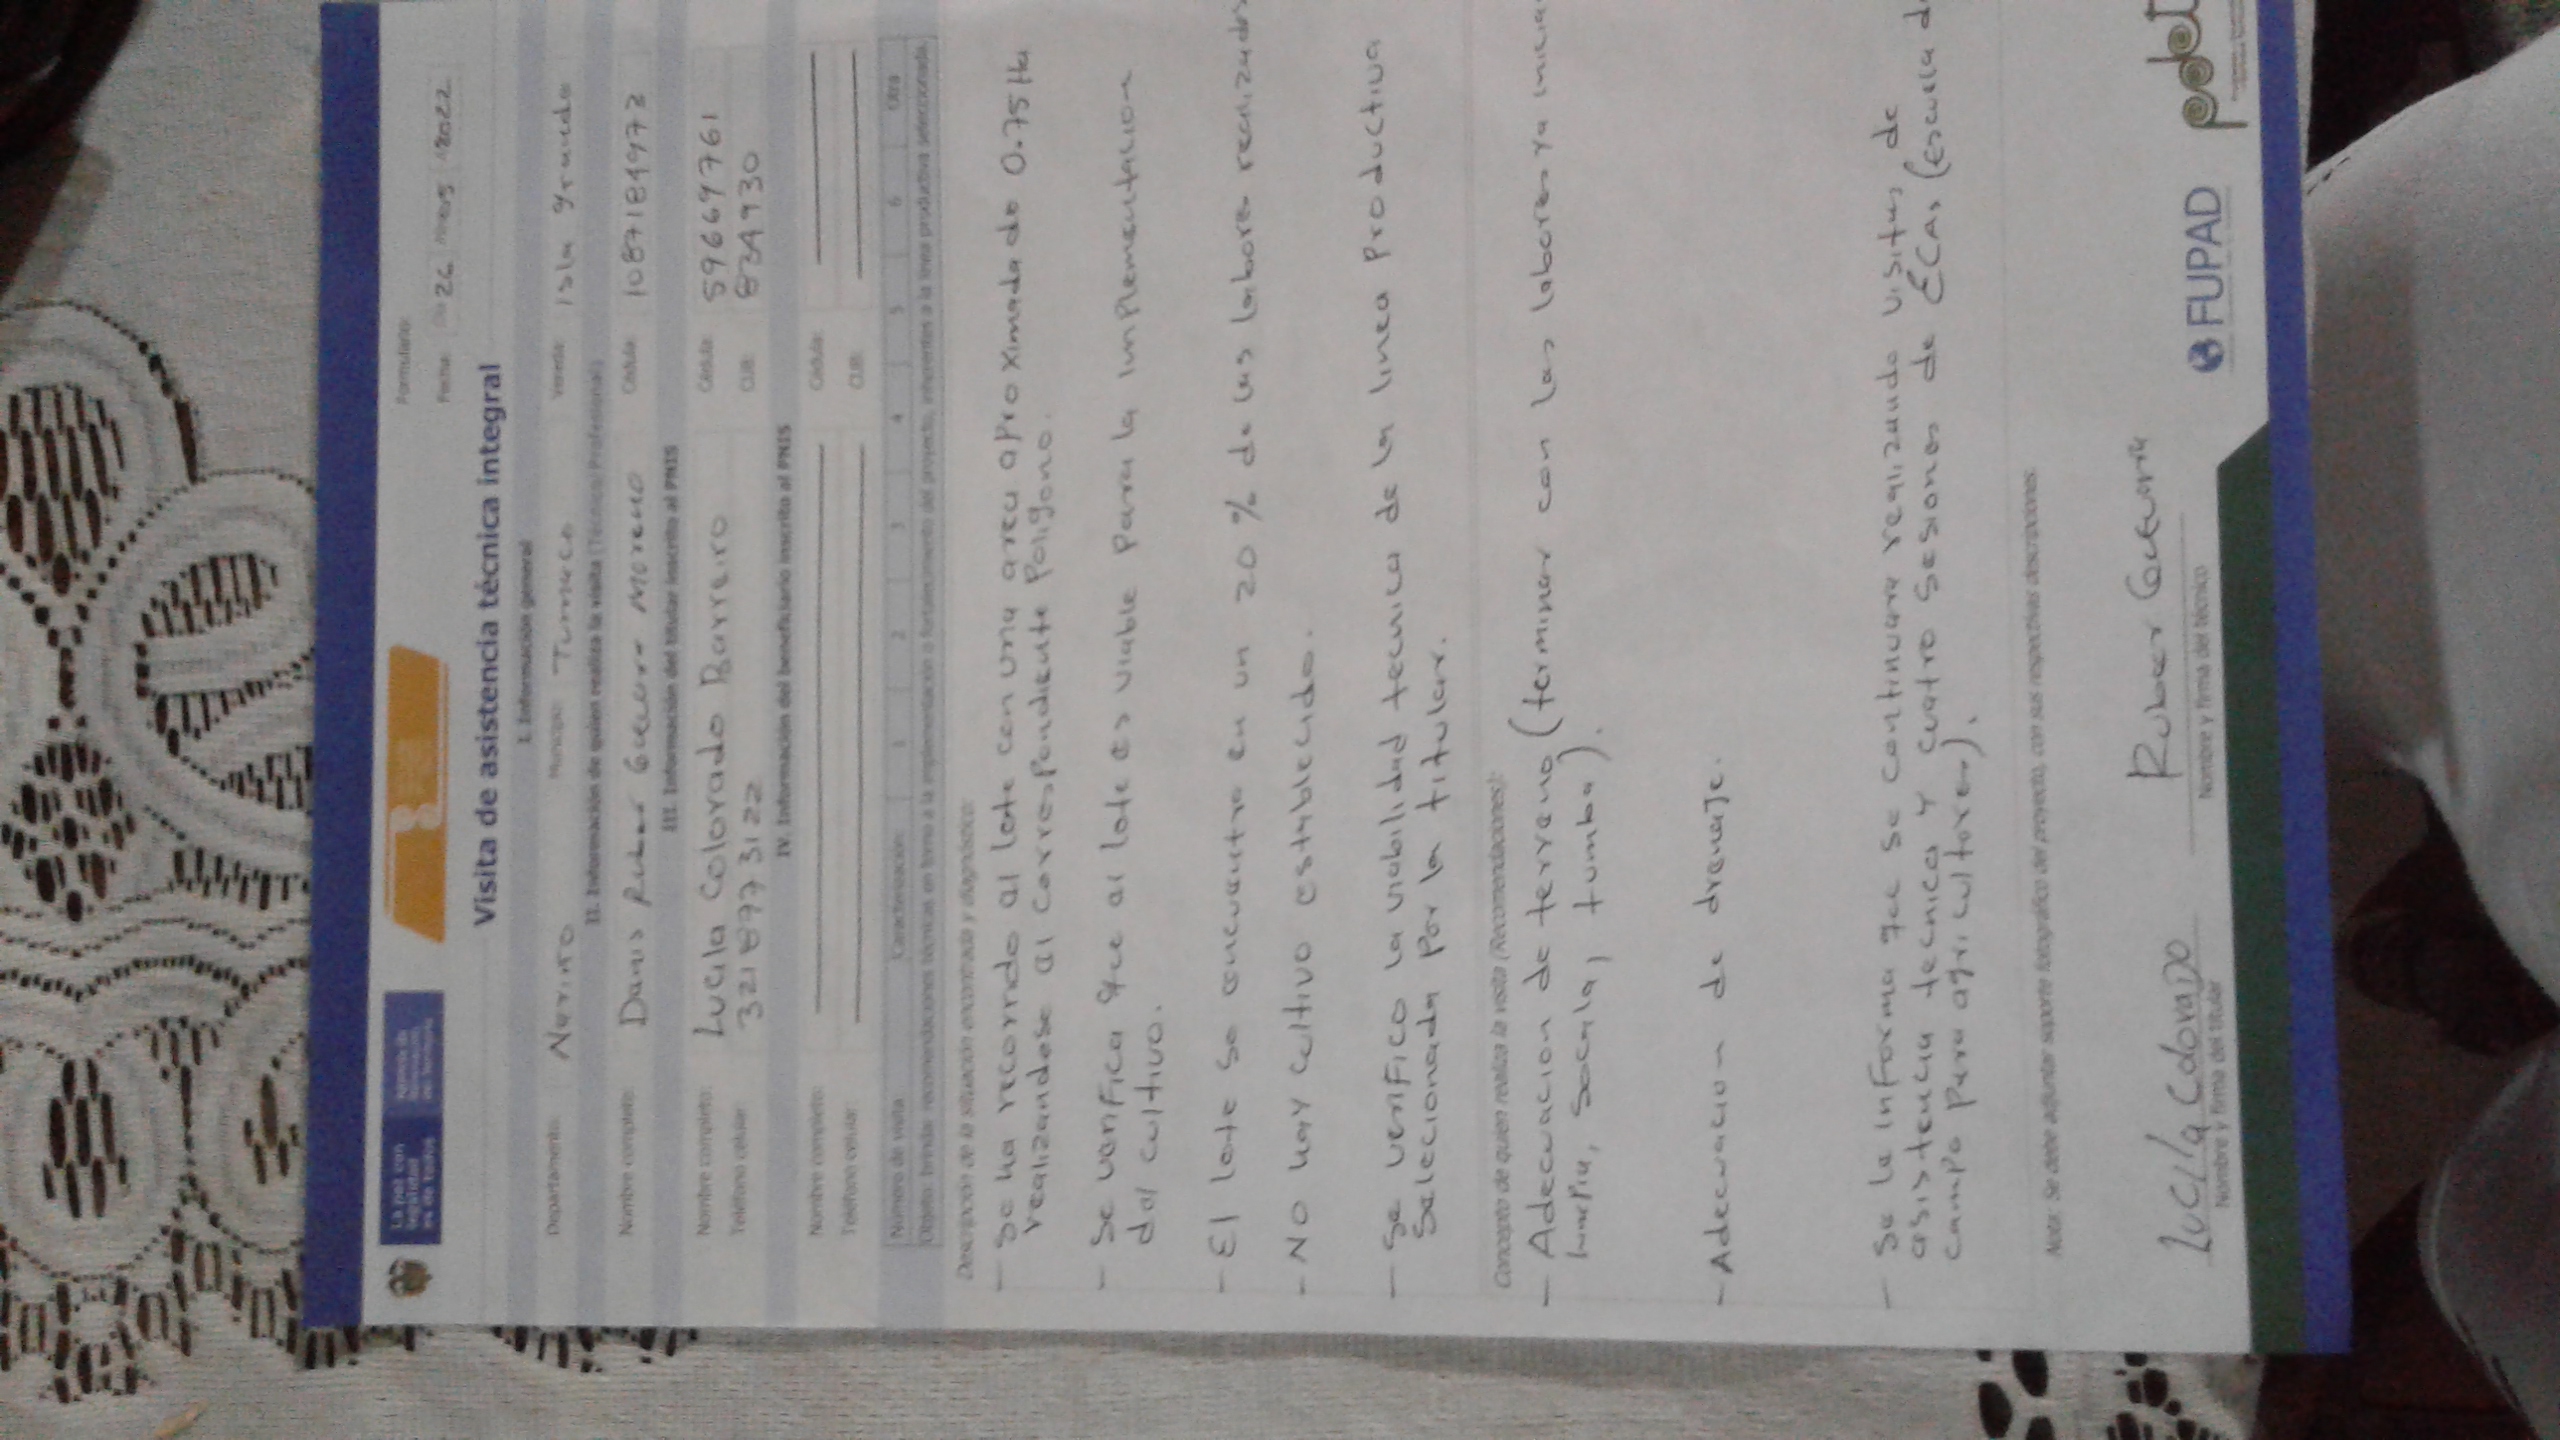 La paz con legalidad es de todos
Agencia de Renovación del Territorio
Formulario:
Fecha: 26 2022
Visita de asistencia técnica integral
I. Información general
Departamento: Nariño Municipio: Tumaco Vereda: Isla Grande
II. Información de quien realiza la visita (Técnico/Profesional)
Nombre completo: Cédula: 1087184973
III. Información del titular inscrito al PNIS
Nombre completo: Lucila Colorado Barreiro Cédula: 596669761
Teléfono celular: 3218773122 CUB: 834930
IV. Información del beneficiario inscrito al PNIS
Nombre completo: Cédula:
Teléfono celular: CUB:
Número de visita Caracterización: 1 2 3 4 5 6 Otra
Objeto: brindar recomendaciones técnicas en torno a la implementación o fortalecimiento del proyecto, inherentes a la línea productiva seleccionada.
Descripción de la situación encontrada y diagnóstico:
- Se ha recorrido el lote con una area aproximada de 0.75 Ha
realizandose el correspondiente Poligono.
- Se verifica que el lote es viable para la implementacion
del cultivo.
- El lote se encuentra en un 20 % de las labores realizadas
- No hay cultivo establecido.
- Se verifico la viabilidad tecnica de la linea productiva
Selecionada por la titular.
Concepto de quien realiza la visita (Recomendaciones):
- Adecuacion de terreno (terminar con las labores ya
limpia, socala, tumba).
- Adecuacion de drenaje.
- Se le informa que se continuara realizando visitas de
asistencia tecnica y cuatro sesiones de ECAs (Escuela de
campo para agricultores).
Nota: Se debe adjuntar soporte fotográfico del proyecto, con sus respectivas descripciones.
Lucila Colorado Ruber Guevara
Nombre y firma del titular Nombre y firma del técnico
FUPAD